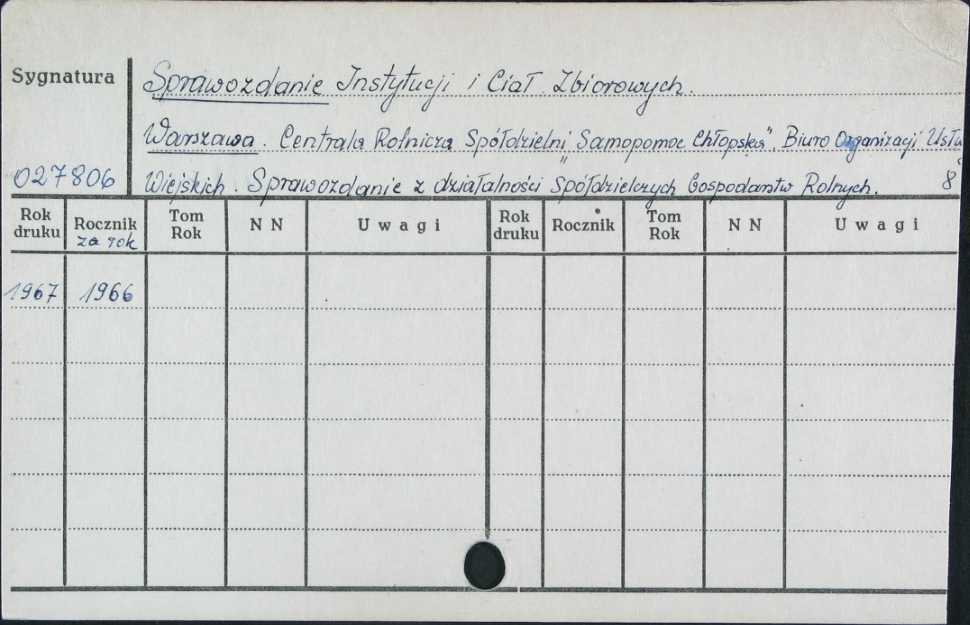 Sygnatura
Sprawozdanie Instytucji i Ciał Zbiorowych.
Warszawa. Centrala Rolnicza Spółdzielni „Samopomoc Chłopska”, Biuro Organizacji Usłu
027806
Wiejskich. Sprawozdanie z działalności Spółdzielczych Gospodarstw Rolnych. 8
Rok druku Rocznik za rok Tom Rok N N Uwagi Rok druku Rocznik Tom Rok N N Uwagi
1967 1966